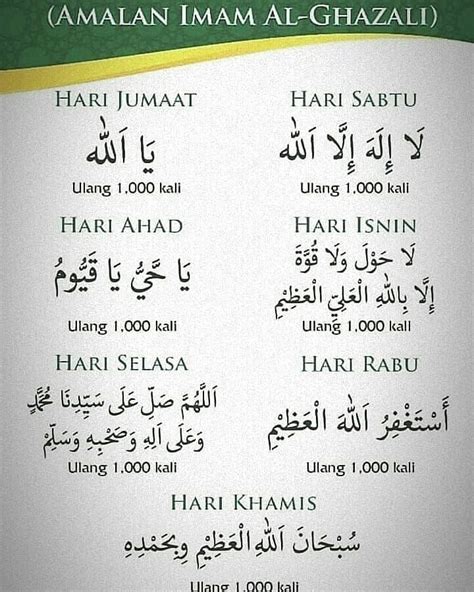 (AMALAN IMAM AL-GHAZALI)
HARI JUMAAT
يَا اَللّٰه
Ulang 1,000 kali
HARI SABTU
لَا إِلَهَ إِلَّا اَللّٰه
Ulang 1,000 kali
HARI AHAD
يَا حَيُّ يَا قَيُّومُ
Ulang 1,000 kali
HARI ISNIN
لَا حَوْلَ وَلَا قُوَّةَ
إِلَّا بِاللّٰهِ الْعَلِيِّ الْعَظِيْمِ
Ulang 1,000 kali
HARI SELASA
اَللَّهُمَّ صَلِّ عَلَى سَيِّدِنَا مُحَمَّدٍ
وَعَلَى اَلِهِ وَصَحْبِهِ وَسَلِّمْ
Ulang 1,000 kali
HARI RABU
أَسْتَغْفِرُ اَللّٰهَ الْعَظِيْمِ
Ulang 1,000 kali
HARI KHAMIS
سُبْحَانَ اَللّٰهِ الْعَظِيْمِ وَبِحَمْدِهِ
Ulang 1,000 kali